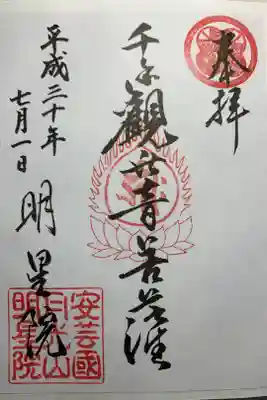 奉拝
千手觀世音菩薩
平成三十年
七月一日
明星院
安芸國
月光山
明星院